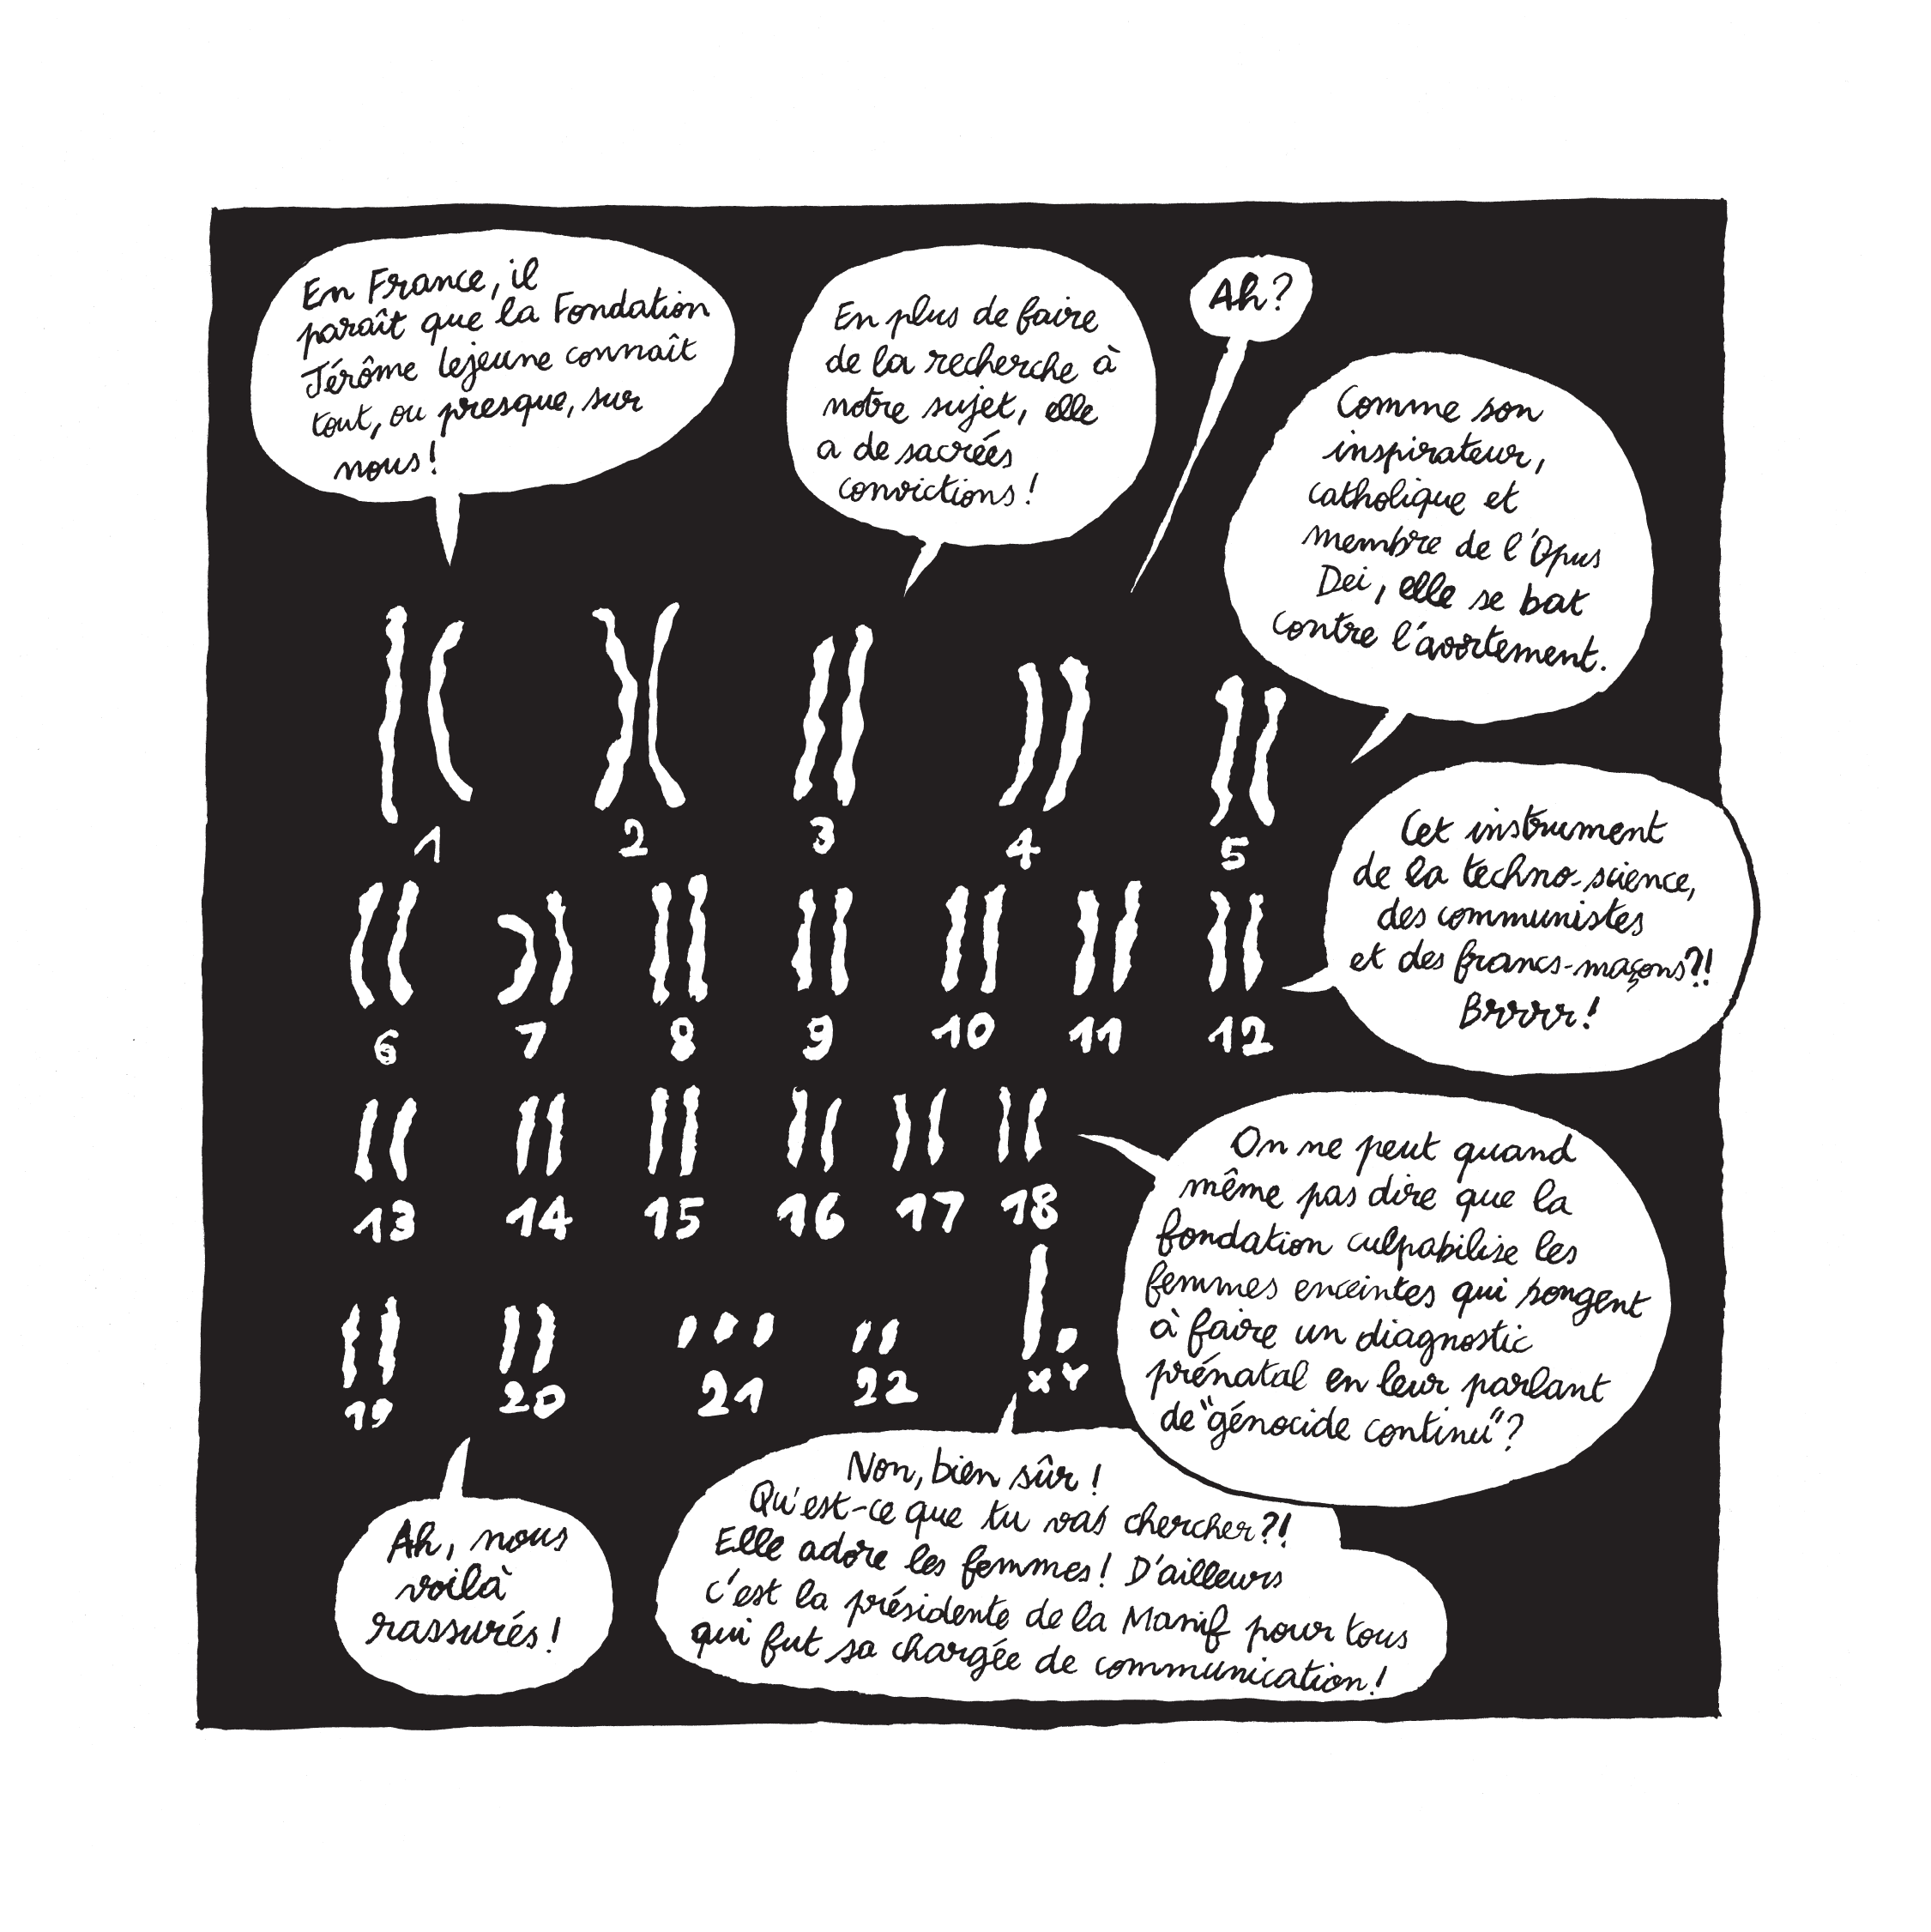 En France, il
paraît que la Fondation
Jérôme Lejeune connaît
tout, ou presque, sur
nous!
En plus de faire
de la recherche à
notre sujet, elle
a de sacrées
convictions!
Ah?
Comme son
inspirateur,
catholique et
membre de l'Opus
Dei, elle se bat
contre l'avortement.
1 2 3 4 5
Cet instrument
de la techno-science,
des communistes
et des francs-maçons?!
Brrrr!
6 7 8 9 10 11 12
On ne peut quand
même pas dire que la
fondation culpabilise les
femmes enceintes qui songent
à faire un diagnostic
prénatal en leur parlant
de "génocide continu"?
13 14 15 16 17 18
19 20 21 22 XY
Non, bien sûr!
Qu'est-ce que tu vas chercher?!
Elle adore les femmes! D'ailleurs
c'est la présidente de la Manif pour tous
qui fut sa chargée de communication!
Ah, nous
voilà
rassurés!